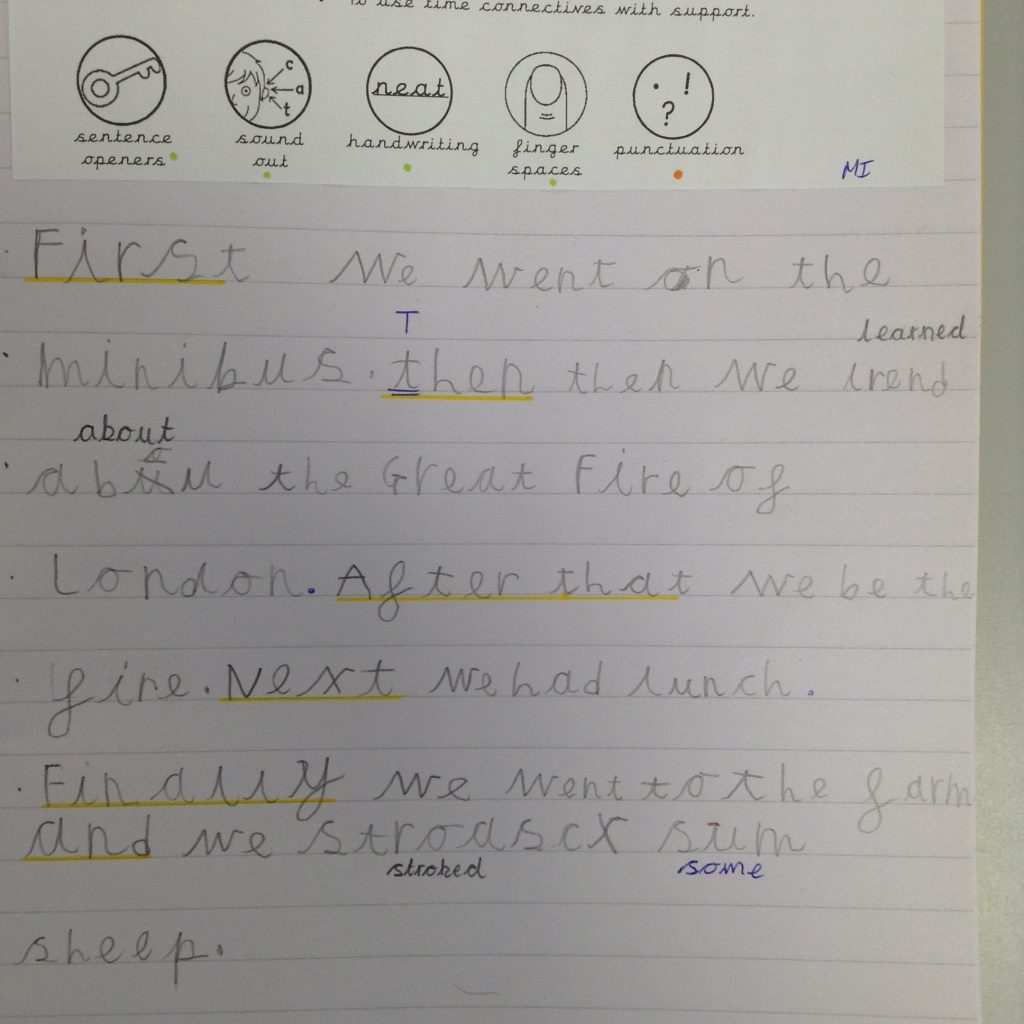 To use time connectives with support.
c
a
t
neat
. !
?
sentence openers
sound out
handwriting
finger spaces
punctuation
MI
First we went on the
T
learned
minibus. then then we lrend
about
the Great Fire of
London. After that we be the
fire. Next we had lunch.
Finally we went to the farm
and we stroascx sum
stroked some
sheep.